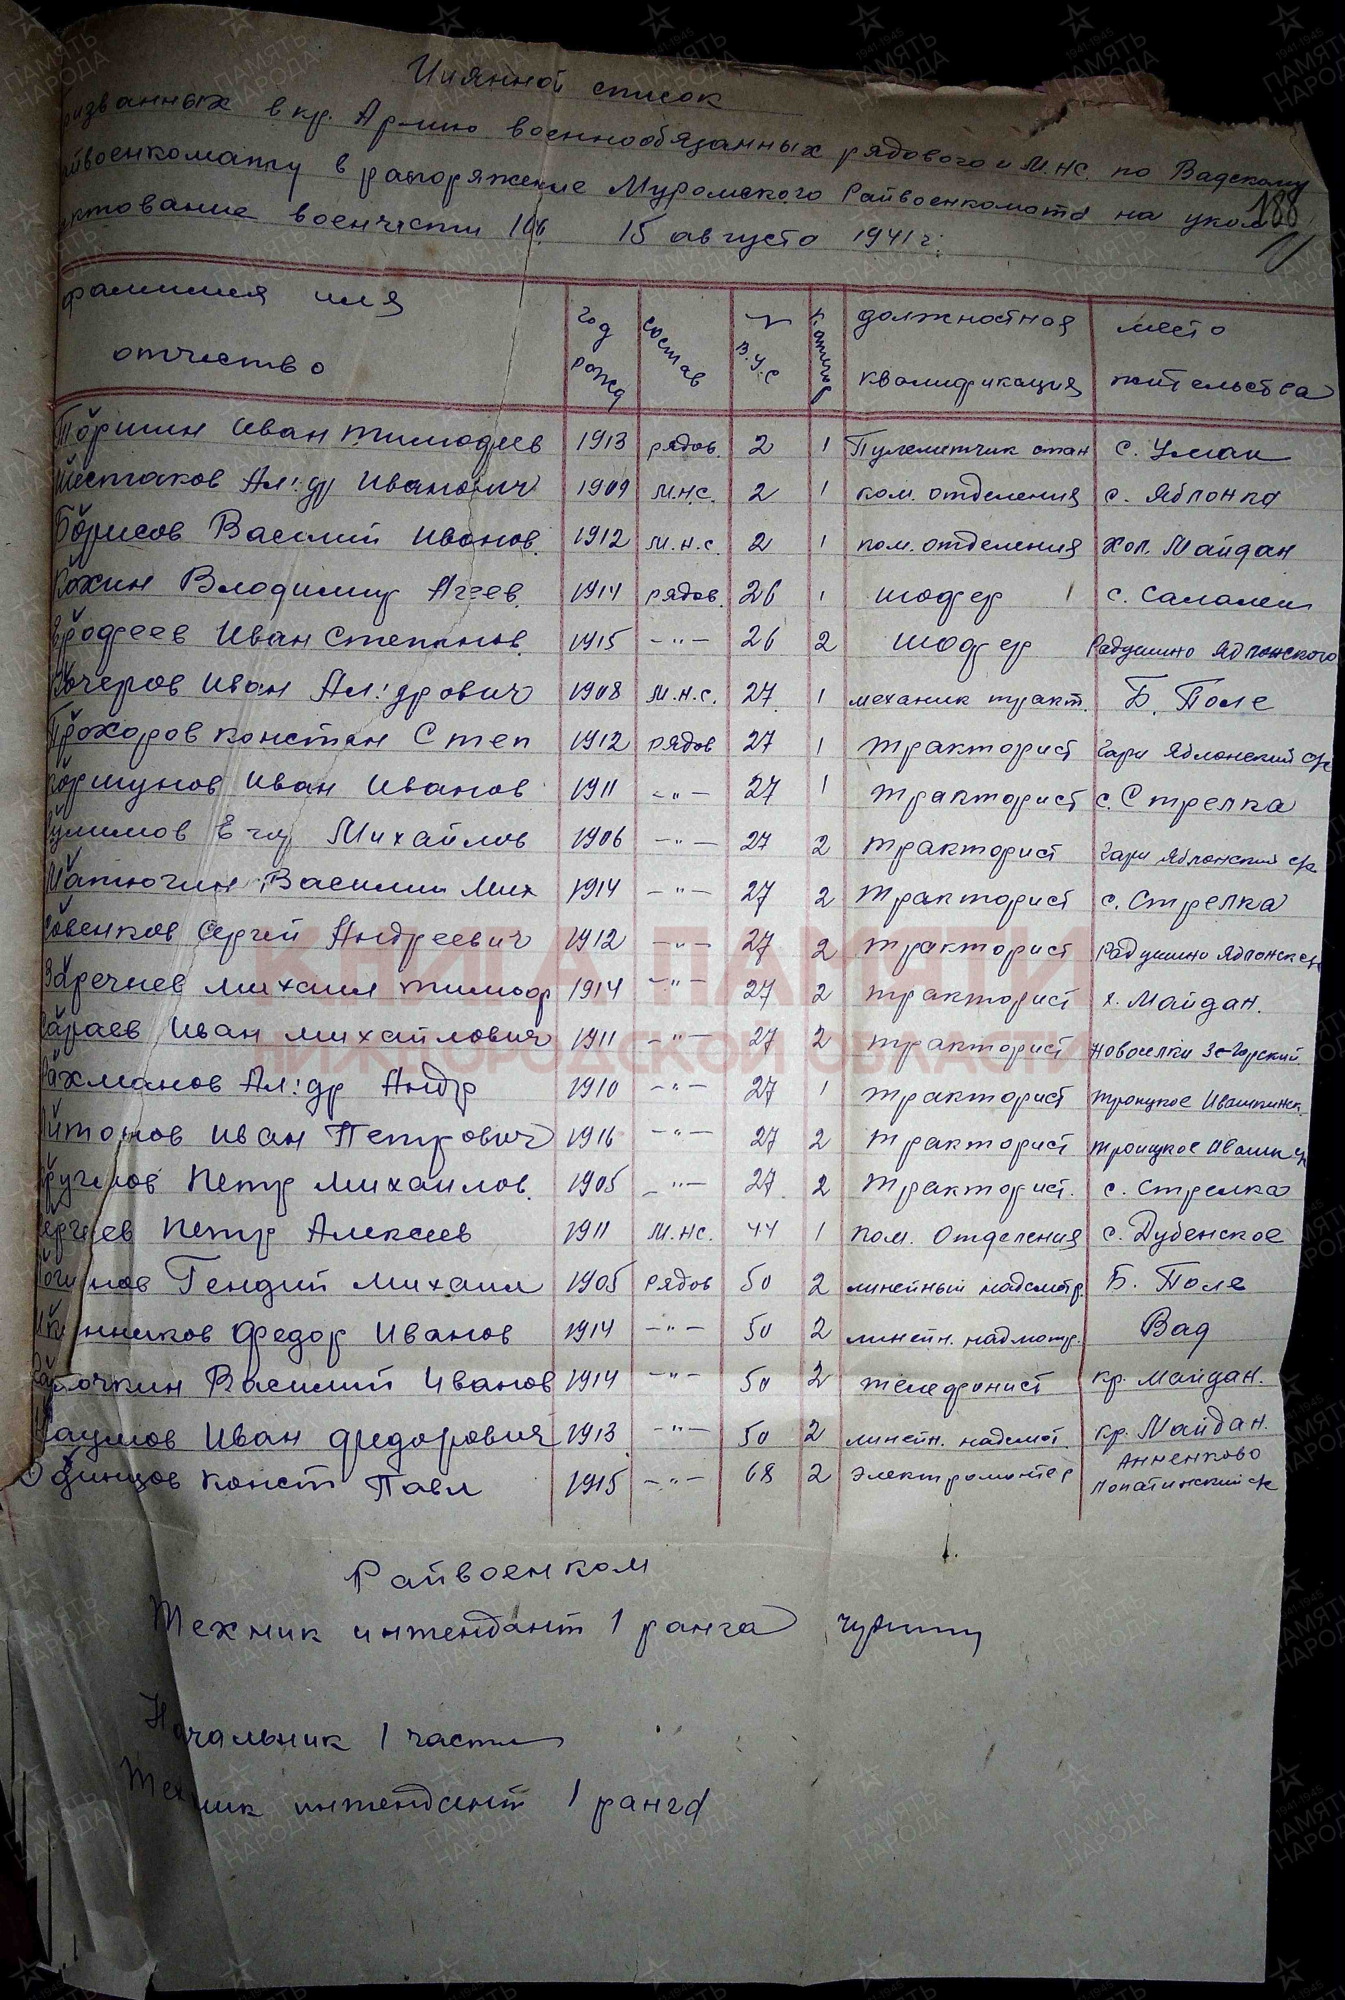 Имянной список
ризванных в кр. Армию военнообязанных рядового и М.НС. по Вадскому
айвоенкомату в распоряжение Муромского Райвоенкомата на уком
188
ктование военчасти 106. 15 августа 1941 г.
фамилия имя отчество год рожд состав № В.У.С должностная квалификация место жительства
Торшин Иван Тимофеев 1913 рядов. 2 1 Пулеметчик стан с. Умай
Шестаков Ал:др Иванович 1909 М.НС. 2 1 ком. отделения с. Яблонка
Борисов Василий Иванов. 1912 М.Н.С. 2 1 пом. отделения Хол. Майдан
Кохин Владимир Агеев. 1914 рядов. 26 1 шофер с. Салалеи
Ерофеев Иван Степанов. 1915 —"— 26 2 шофер Радушино Яблонского
Кочеров Иван Ал:дрович 1908 М.Н.С. 27 1 механик тракт. Б. Поле
Прохоров Констан Степ 1912 рядов 27 1 тракторист Гари Яблонский с/с
Коршунов Иван Иванов 1911 —"— 27 1 тракторист с. Стрелка
Михайлов 1906 —"— 27 2 тракторист Гари Яблонский с/с
Матюгин Василий Мих 1914 —"— 27 2 тракторист с. Стрелка
овенков Сергей Андреевич 1912 —"— 27 2 тракторист Радушино Яблонск с/с
Заречнев Михаил Тимоф 1914 —"— 27 2 тракторист х. Майдан.
Сараев Иван Михайлович 1911 —"— 27 2 тракторист Новоселки
Рахманов Ал:др Андр 1910 —"— 27 1 тракторист Троицкое Ивашкинск.
Антонов Иван Петрович 1916 —"— 27 2 тракторист Троицкое Ивашк с/с
Круглов Петр Михайлов. 1905 —"— 27 2 тракторист. с. Стрелка
ергеев Петр Алексеев 1911 М.НС. 44 1 пом. Отделения с. Дубенское
Логинов Гендий Михаил 1905 рядов 50 2 линейный надсмотр. Б. Поле
нников Федор Иванов 1914 —"— 50 2 линейн. надмотр. Вад
очкин Василий Иванов 1914 —"— 50 2 телефонист кр. Майдан.
Наумов Иван Федорович 1913 —"— 50 2 линейн. надсмот. кр. Майдан.
Одинцов Конст Павл 1915 —"— 68 2 электромонтер Анненково Лопатинский с/с
Райвоенком
Техник интендант 1 ранга
Начальник 1 части
Техник интендант 1 ранга
КНИГА ПАМЯТИ
НИЖЕГОРОДСКОЙ ОБЛАСТИ
1941-1945
ПАМЯТЬ
НАРОДА